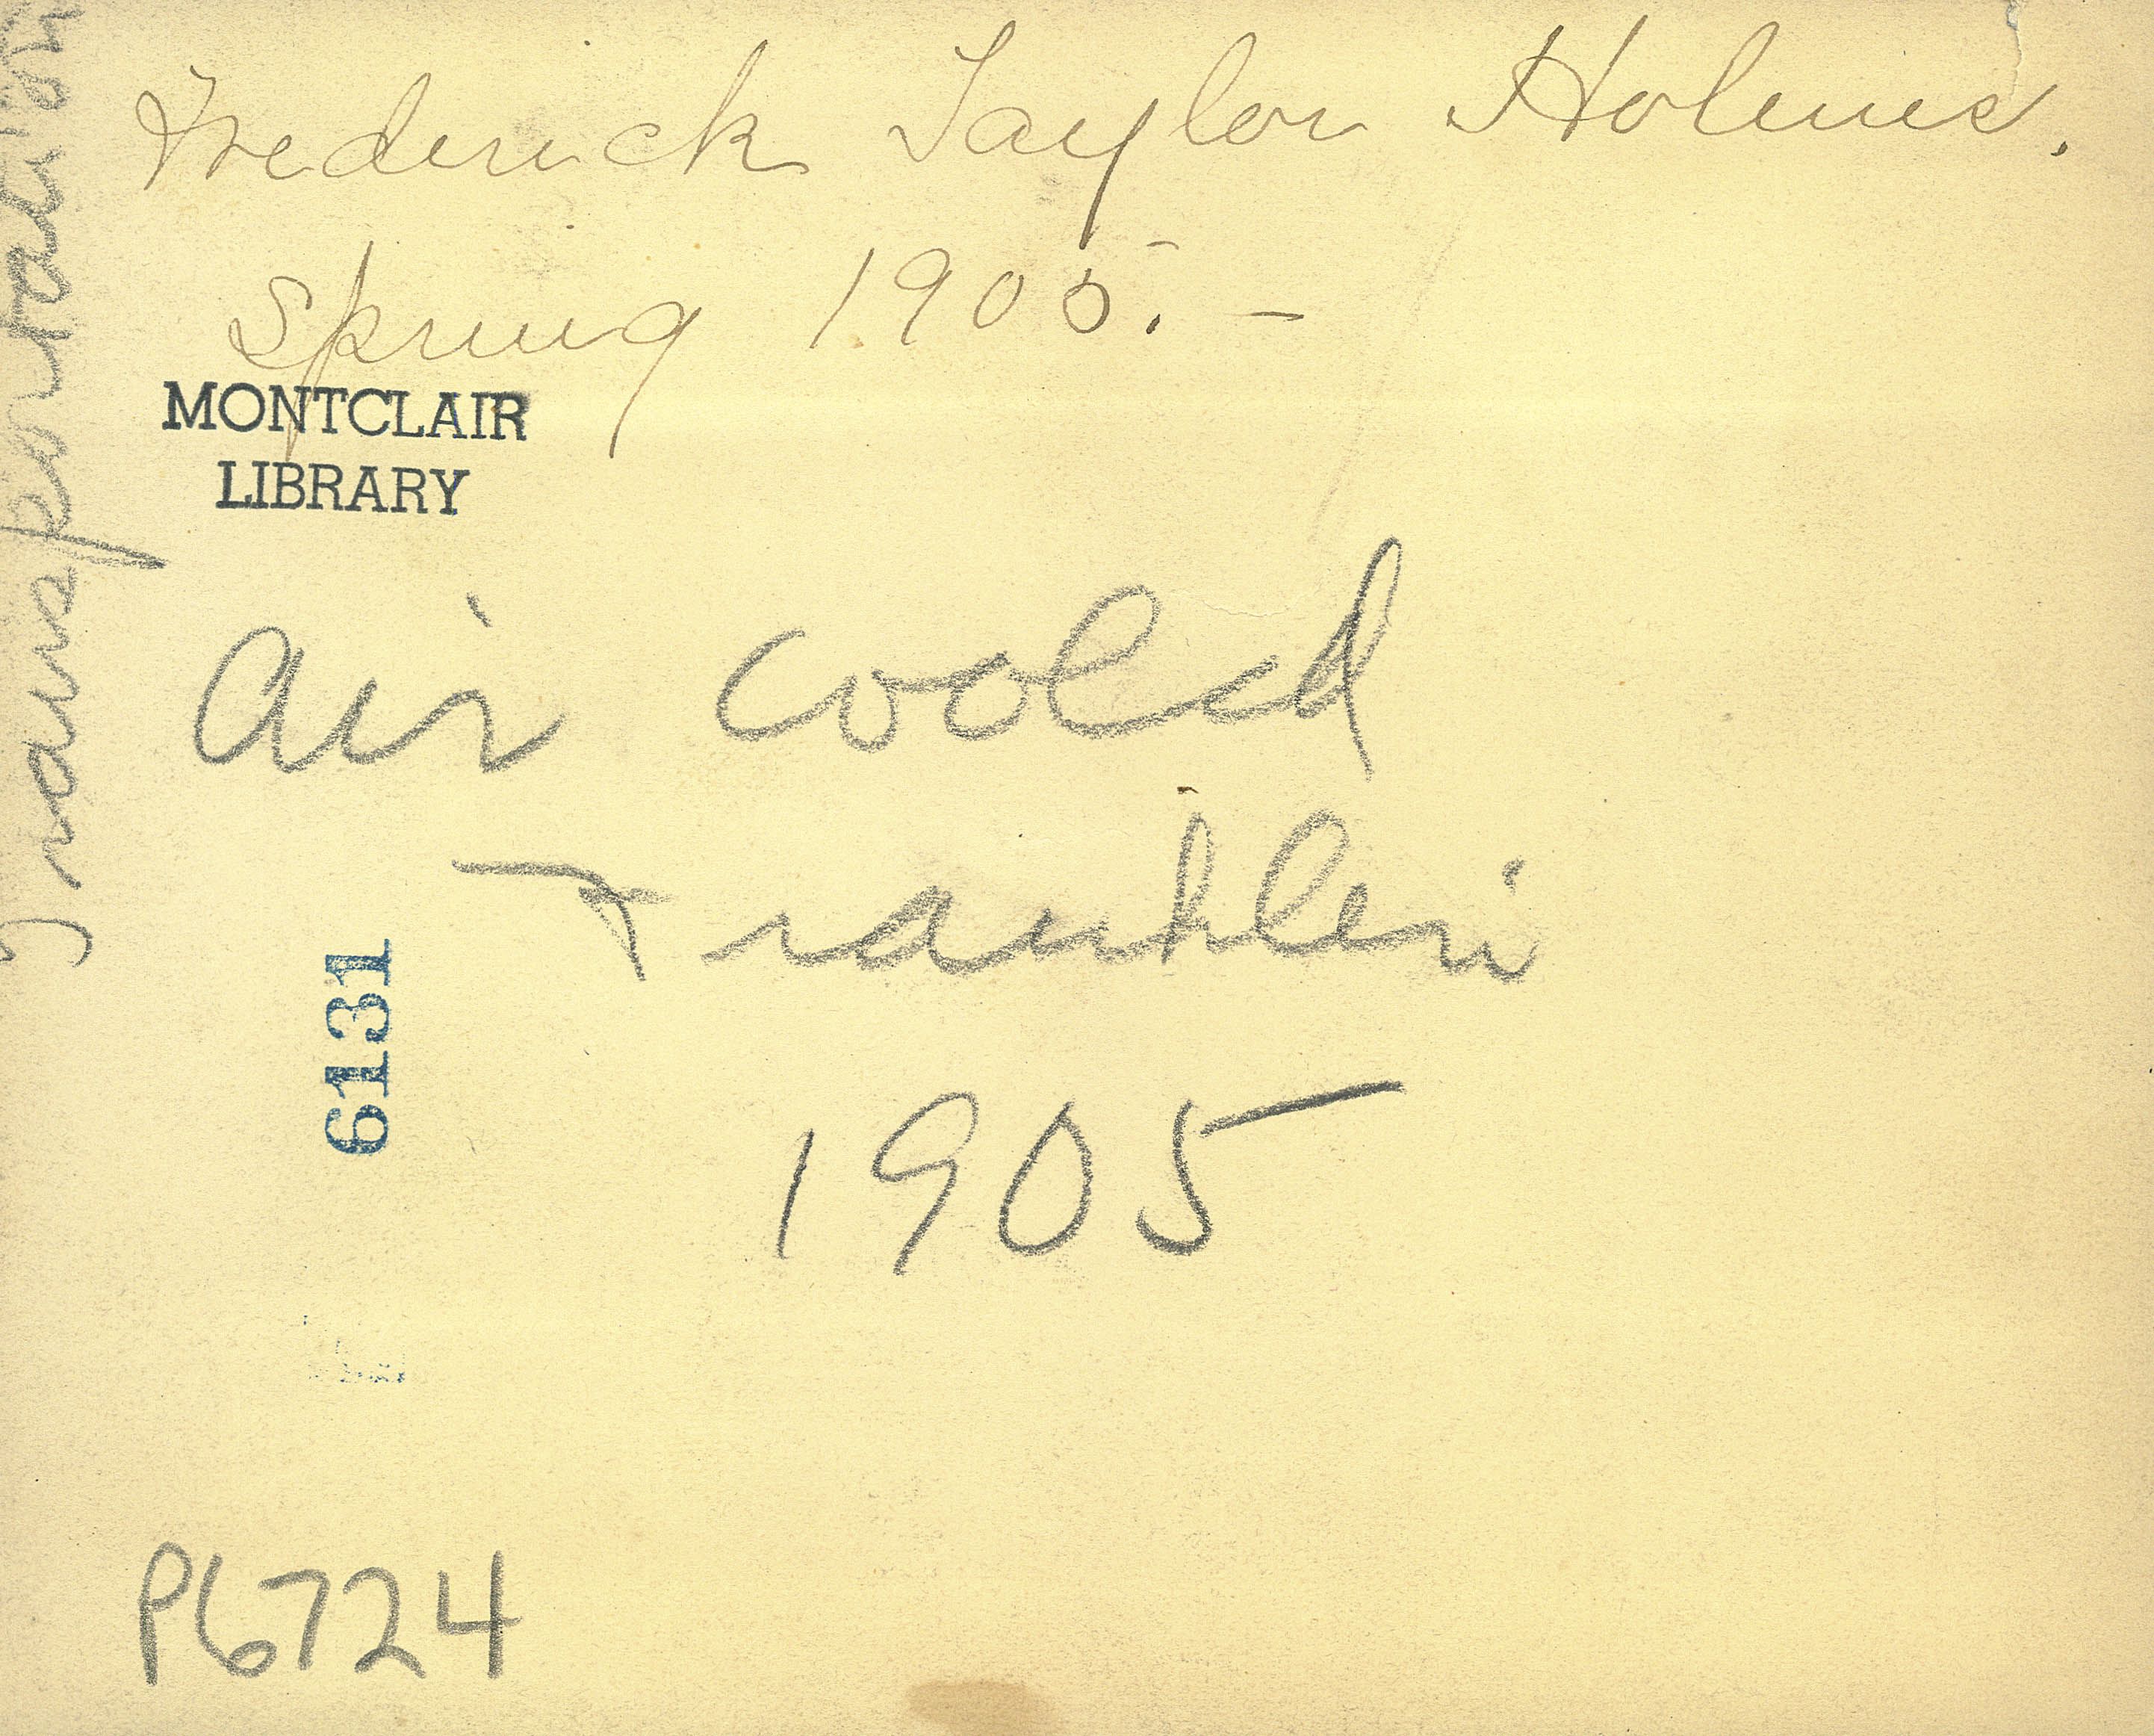 Frederick Taylor Holmes.
Spring 1905. –
MONTCLAIR
LIBRARY
Transportation
air cooled
Franklin
1905
6131
P6724